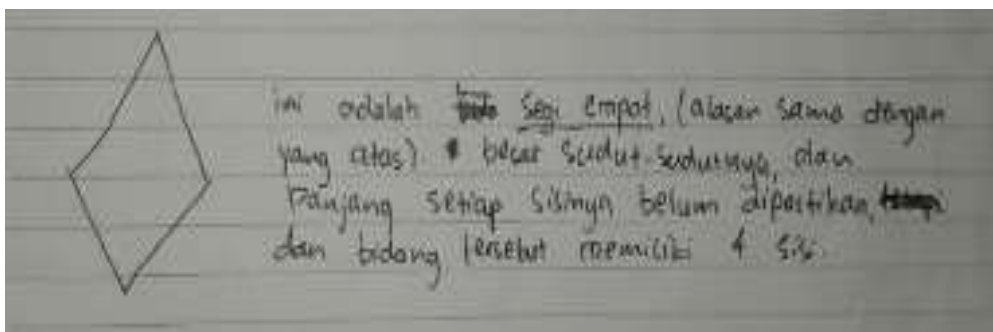 ini adalah segi empat, (alasan sama dengan
yang atas) besar sudut-sudutnya, dan
Panjang setiap sisinya belum dipastikan,
dan bidang tersebut memiliki 4 sisi.